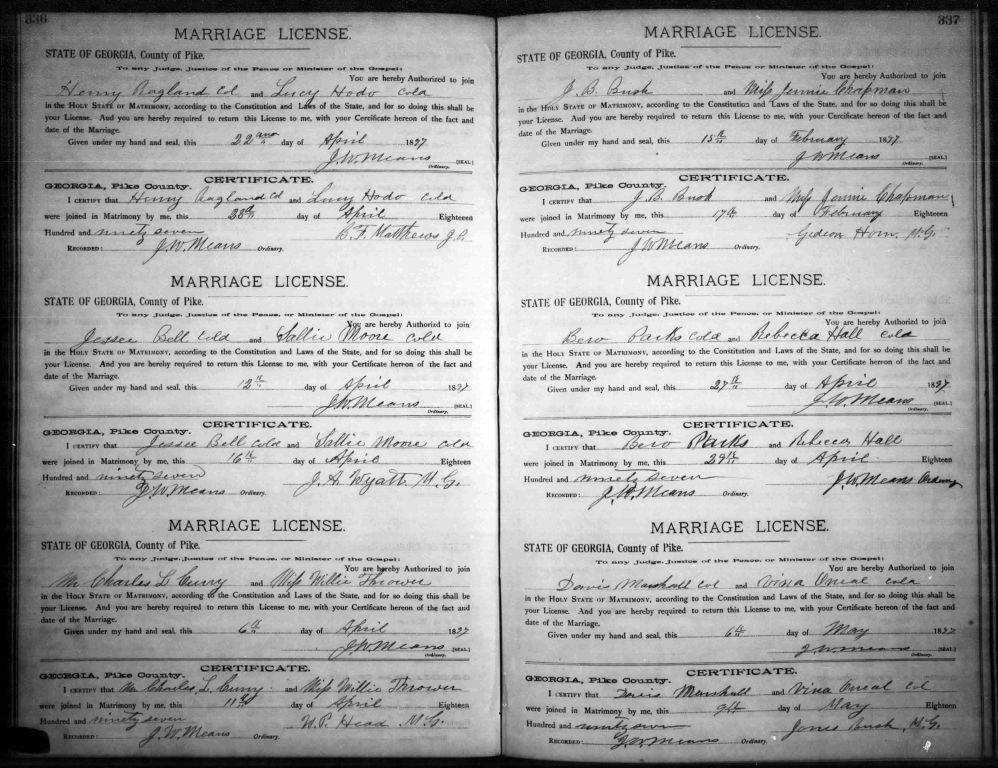 336
MARRIAGE LICENSE.
STATE OF GEORGIA, County of Pike.
To any Judge, Justice of the Peace, or Minister of the Gospel:
You are hereby Authorized to join
Henry Ragland Col and Lucy Hodo Cold
in the HOLY STATE OF MATRIMONY, according to the Constitution and Laws of the State, and for so doing this shall be
your License. And you are hereby required to return this License to me, with your Certificate hereon of the fact and
date of the Marriage.
Given under my hand and seal, this 22nd day of April 1897
J.W. Means [SEAL]
Ordinary.
CERTIFICATE.
GEORGIA, Pike County.
I CERTIFY that Henry Ragland Cd and Lucy Hodo Cold
were joined in Matrimony by me, this day of April Eighteen
Hundred and ninety seven B.F. Matthews J.P.
RECORDED: J.W. Means Ordinary.
MARRIAGE LICENSE.
STATE OF GEORGIA, County of Pike.
To any Judge, Justice of the Peace, or Minister of the Gospel:
You are hereby Authorized to join
Jessee Bell Cold and Sallie Moore Cold
in the HOLY STATE OF MATRIMONY, according to the Constitution and Laws of the State, and for so doing this shall be
your License. And you are hereby required to return this License to me, with your Certificate hereon of the fact and
date of the Marriage.
Given under my hand and seal, this 12th day of April 1897
J.W. Means [SEAL]
Ordinary.
CERTIFICATE.
GEORGIA, Pike County.
I CERTIFY that Jessee Bell Cold and Sallie Moore Cold
were joined in Matrimony by me, this 16th day of April Eighteen
Hundred and ninety seven J. A. Wyatt M.G.
RECORDED: J.W. Means Ordinary.
MARRIAGE LICENSE.
STATE OF GEORGIA, County of Pike.
To any Judge, Justice of the Peace, or Minister of the Gospel:
You are hereby Authorized to join
Mr Charles L Curry and Miss Willie Thrower
in the HOLY STATE OF MATRIMONY, according to the Constitution and Laws of the State, and for so doing this shall be
your License. And you are hereby required to return this License to me, with your Certificate hereon of the fact and
date of the Marriage.
Given under my hand and seal, this 6th day of April 1897
J.W. Means [SEAL]
Ordinary.
CERTIFICATE.
GEORGIA, Pike County.
I CERTIFY that Mr Charles L. Curry and Miss Willie Thrower
were joined in Matrimony by me, this 11th day of April Eighteen
Hundred and ninety seven W.P. Head M.G.
RECORDED: J.W. Means Ordinary.
337
MARRIAGE LICENSE.
STATE OF GEORGIA, County of Pike.
To any Judge, Justice of the Peace or Minister of the Gospel:
You are hereby Authorized to join
J. B. Bush and Miss Jennie Chapman
in the HOLY STATE OF MATRIMONY, according to the Constitution and Laws of the State, and for so doing this shall be
your License. And you are hereby required to return this License to me, with your Certificate hereon of the fact and
date of the Marriage.
Given under my hand and seal, this 15th day of February 1897
J W Means [SEAL]
Ordinary.
CERTIFICATE.
GEORGIA, Pike County.
I CERTIFY that J. B. Bush and Miss Jennie Chapman
were joined in Matrimony by me, this 17th day of February Eighteen
Hundred and ninety seven Gideon Horn. M.G.
RECORDED: J W Means Ordinary.
MARRIAGE LICENSE.
STATE OF GEORGIA, County of Pike.
To any Judge, Justice of the Peace, or Minister of the Gospel:
You are hereby Authorized to join
Bero Parks Cold and Rebecca Hall Cold
in the HOLY STATE OF MATRIMONY, according to the Constitution and Laws of the State, and for so doing this shall be
your License. And you are hereby required to return this License to me, with your Certificate hereon of the fact and
date of the Marriage.
Given under my hand and seal, this 27th day of April 1897
J.W. Means [SEAL]
Ordinary.
CERTIFICATE.
GEORGIA, Pike County.
I CERTIFY that Bero Parks and Rebecca Hall
were joined in Matrimony by me, this 29th day of April Eighteen
Hundred and ninety seven J.W. Means Ordinary
RECORDED: J.W. Means Ordinary.
MARRIAGE LICENSE.
STATE OF GEORGIA, County of Pike.
To any Judge, Justice of the Peace, or Minister of the Gospel:
You are hereby Authorized to join
Davis Marshall Col and Visia Oneal Cold
in the HOLY STATE OF MATRIMONY, according to the Constitution and Laws of the State, and for so doing this shall be
your License. And you are hereby required to return this License to me, with your Certificate hereon of the fact and
date of the Marriage.
Given under my hand and seal, this 6th day of May 1897
J.W. Means [SEAL]
Ordinary.
CERTIFICATE.
GEORGIA, Pike County.
I CERTIFY that Davis Marshall and Visia Oneal Col
were joined in Matrimony by me, this 9th day of May Eighteen
Hundred and ninety seven Jones Bush, M.G.
RECORDED: J.W. Means Ordinary.